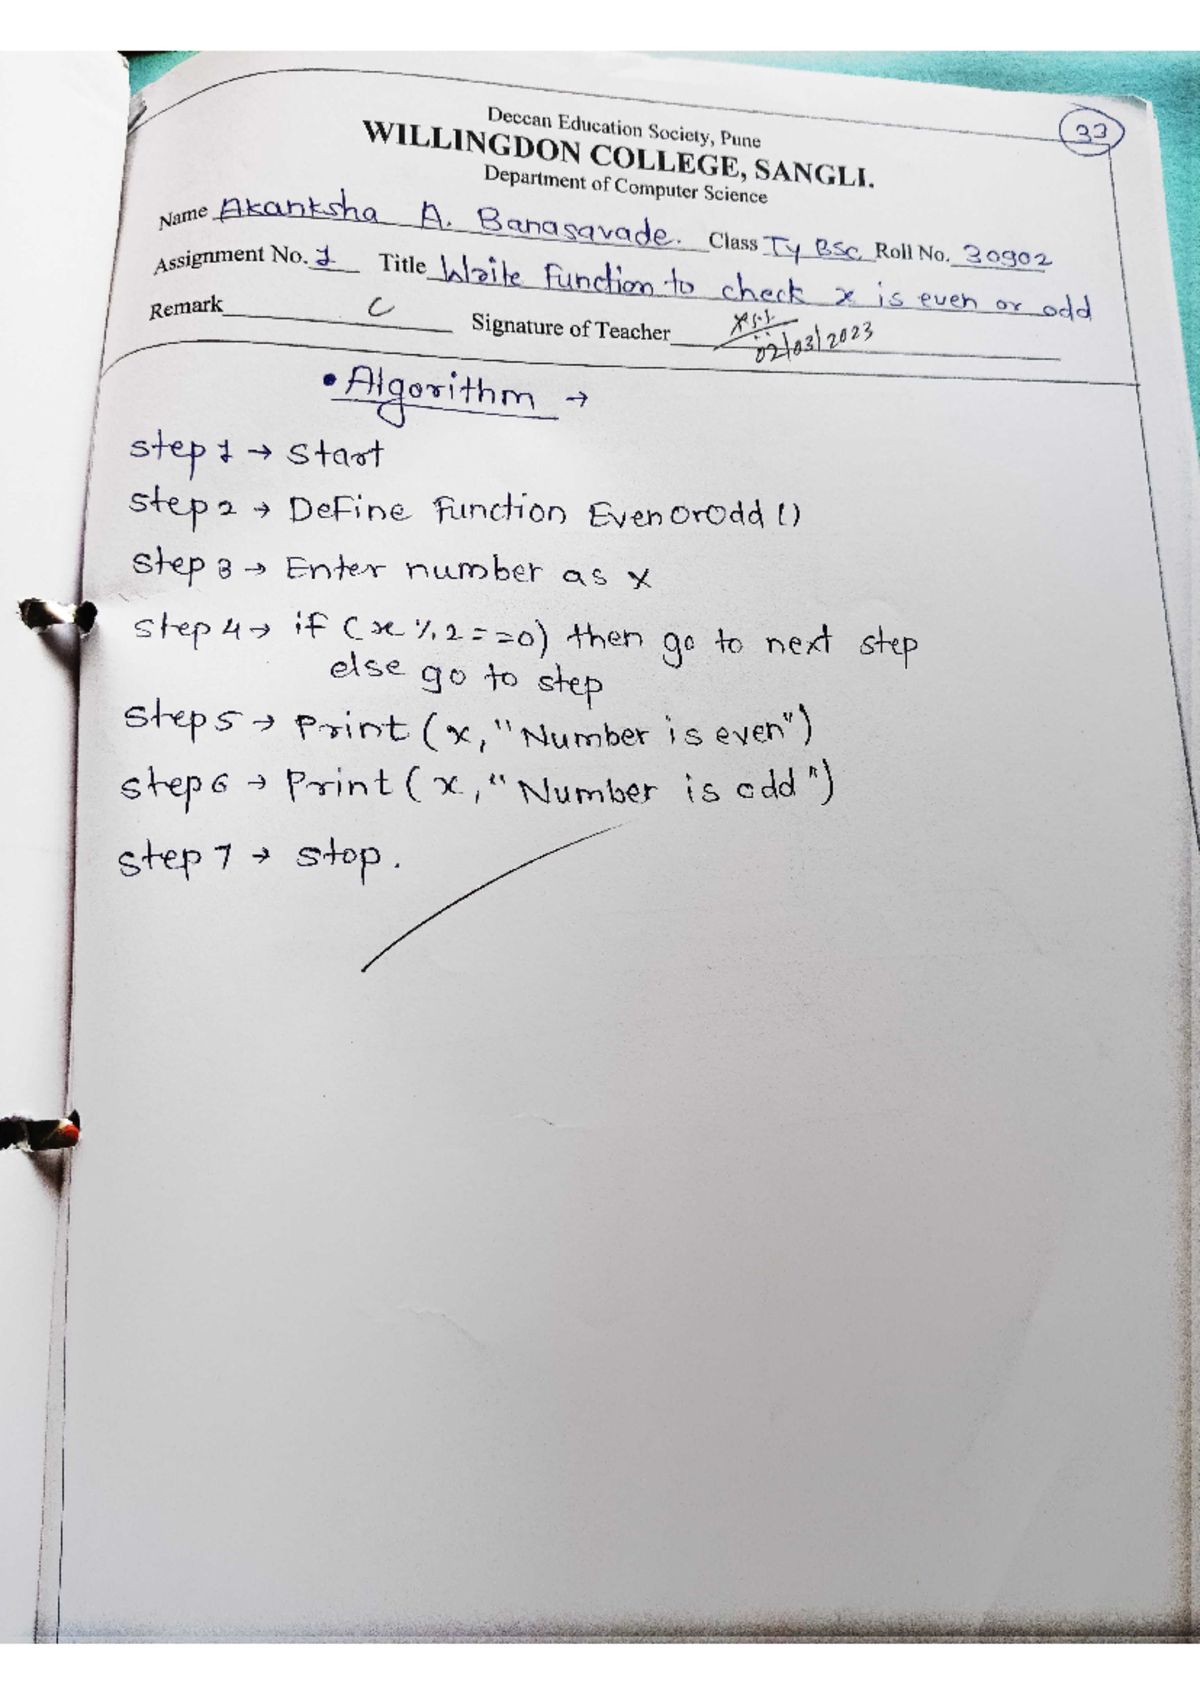 33
Deccan Education Society, Pune
WILLINGDON COLLEGE, SANGLI.
Department of Computer Science
Name Akanksha A. Banasavade. Class Ty BSc Roll No. 30902
Assignment No. 1 Title Write Function to check x is even or odd
Remark C Signature of Teacher
02/03/2023
• Algorithm →
step 1 → Start
step 2 → DeFine Function EvenOrOdd ()
step 3 → Enter number as x
step 4 → if (x % 2 = = 0) then go to next step
else go to step
step 5 → Print (x, "Number is even")
step 6 → Print (x, "Number is odd")
step 7 → stop.